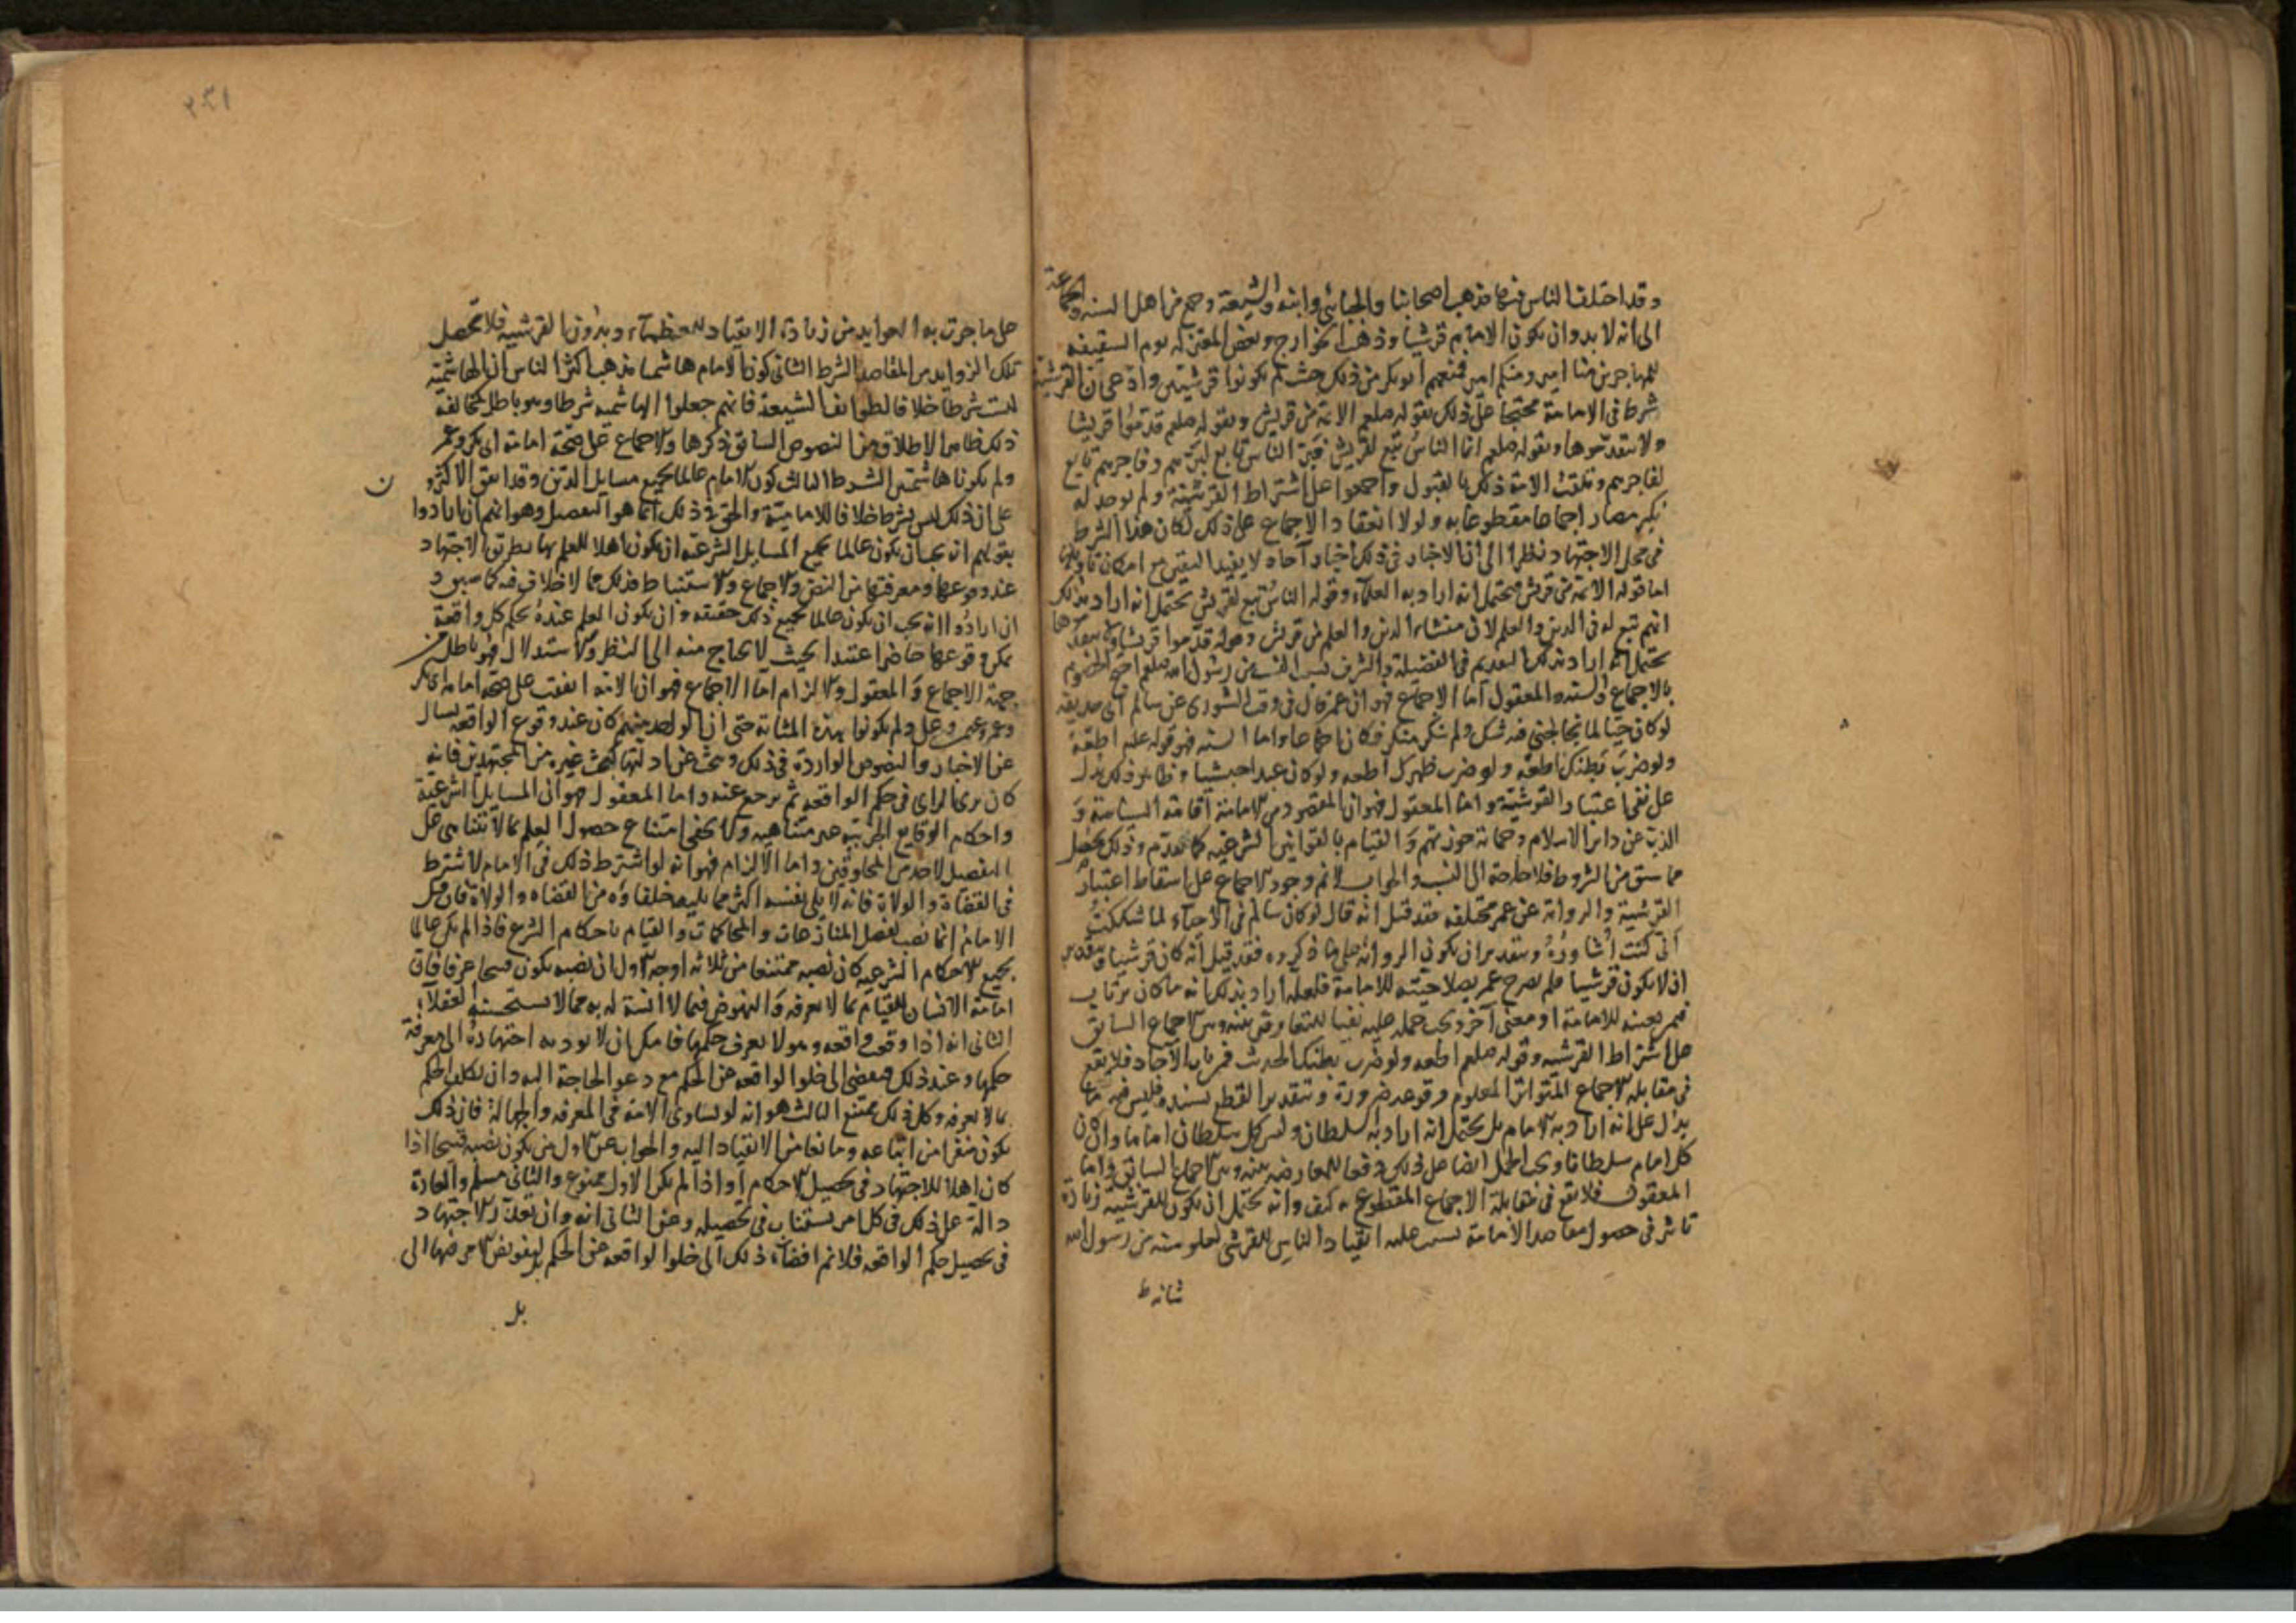 وقد اختلف الناس فيها فذهب اصحابنا والجبائي وابنه والشيعة وجمع من اهل السنه والجماعة
الى انه لا بد وان يكون الامام قرشيا وذهب الخوارج وبعض المعتزله يوم السقيفه
للمهاجرين منا امير ومنكم امير فمنعهم ابو بكر من ذلك حيث لم يكونوا قرشيين وادعى ان القرشية
شرط في الامامة محتجا على ذلك بقوله صلعم الايمة من قريش وبقوله صلعم قدموا قريشا
ولا تتقدموها وبقوله صلعم انما الناس تبع لقريش فبر الناس تابع لبرهم وفاجرهم تابع
لفاجرهم وتلقت الامة ذلك بالقبول واجمعوا على اشتراط القرشية ولم يوجد له
نكير فصار اجماعا مقطوعا به ولولا انعقاد الاجماع على ذلك لكان هذا الشرط
في محل الاجتهاد نظرا الى ان الاخبار في ذلك اخبار آحاد لا يفيد اليقين مع امكان تاويلها
اما قوله الايمة من قريش فيحتمل انه اراد به العلماء وقوله الناس تبع لقريش يحتمل انه اراد بذلك
انهم تبع له في الدين والعلم لان منشاء الدين والعلم من قريش وقوله قدموا قريشا ولا تتقدموها
يحتمل انه اراد بذلك التقديم في الفضيلة والشرف بسبب القرب من رسول الله صلعم احتج الخصوم
بالاجماع والسنه والمعقول اما الاجماع فهو ان عمر قال في وقت الشورى عن سالم الى حذيفه
لو كان حيا لما تخالجني فيه شك ولم ينكر منكر فكان اجماعا واما السنه فهو قوله عليه اطعه
ولو ضرب بطنك اطعه ولو ضرب ظهرك اطعه ولو كان عبدا حبشيا وظاهر ذلك يدل
على نفي اعتبار القرشية واما المعقول فهو ان المقصود من الامامة اقامة السياسة و
الذب عن دار الاسلام وحماية حوزتهم والقيام بالقوانين الشرعيه كما تقدم وذلك يحصل
مما سبق من الشروط فلا حاجة الى النسب والجواب لا نم وجود الاجماع على اسقاط اعتبار
القرشية والرواية عن عمر مختلفه فقد قيل انه قال لو كان سالم في الاحياء لما شككت
اني كنت اشاوره وبتقدير ان يكون الرواية على ما ذكروه فقد قيل انه كان قرشيا وبتقدير
ان لا يكون قرشيا فلم يصرح عمر بصلاحيته للامامة فلعله اراد بذلك انه ما كان يرتاب
فيمن يعينه للامامة او معنى آخر ويجب حمله عليه نفيا للتعارض بينه وبين الاجماع السابق
على اشتراط القرشيه وقوله صلعم اطعه ولو ضرب بطنك الحديث فمن باب الآحاد فلا يقع
في مقابله الاجماع المتواتر المعلوم وقوعه ضرورة وبتقدير القطع بسنده فليس فيه ما
يدل على انه اراد به الامام بل يحتمل انه اراد به السلطان وليس كل سلطان اماما وان كان
كل امام سلطانا ويجب الحمل ايضا على ذلك دفعا للمعارضه بينه وبين الاجماع السابق واما
المعقول فلا يقع في مقابلة الاجماع المقطوع به كيف وانه يحتمل ان يكون للقرشية زيادة
تاثير في حصول مقاصد الامامة بسبب عليه انقياد الناس للقرشي لعلو نسبته من رسول الله
٢٤١
على ما جرت به العوايد من زيادة الانقياد للعظماء وبدون القرشيه فلا تحصل
تلك الزوايد من المقاصد الشرط الثاني كون الامام هاشميا فذهب اكثر الناس ان الهاشمية
ليست شرطا خلافا لطوايف الشيعة فانهم جعلوا الهاشميه شرطا وهو باطل لمخالفة
ذلك ظاهر الاطلاق من النصوص السابق ذكرها والاجماع على صحة امامة ابى بكر وعمر
ولم يكونا هاشميين الشرط الثالث كون الامام عالما بجميع مسايل الدين وقد اتفق الاكثرون
على ان ذلك ليس بشرط خلافا للامامية والحق في ذلك انما هو التفصيل وهو انهم ان ارادوا
بقولهم انه يجب ان يكون عالما بجميع المسايل الشرعية ان يكون اهلا للعلم بها بطريق الاجتهاد
عند وقوعها ومعرفتها من النص والاجماع والاستنباط فذلك مما لا خلاف فيه كما سبق و
ان ارادوا انه يجب ان يكون عالما بجميع ذلك حقيقه وان يكون العلم عنده بحكم كل واقعة
يمكن وقوعها حاضرا عتيدا بحيث لا يحتاج منه الى النظر والاستدلال فهو باطل من
جهة الاجماع والمعقول والالزام اما الاجماع فهو ان الامه اتفقت على صحة امامة ابى بكر
وعمر وعثمن وعلى ولم يكونوا بهذه المثابة حتى ان الواحد منهم كان عند وقوع الواقعه يسال
عن الاخبار والنصوص الواردة في ذلك ويبحث عن ادلتها كبحث غيره من المجتهدين فانه
كان يرى الراى في حكم الواقعه ثم يرجع عنه واما المعقول فهو ان المسايل الشرعية
واحكام الوقايع الجزئيه غير متناهيه ولا يخفى امتناع حصول العلم بما لا يتناهى على
التفصيل لاحد من المخلوقين واما الالزام فهو انه لو اشترط ذلك في الامام لاشترط
في القضاة والولاة فانه لا يلى بنفسه اكثر مما يليه خلفاؤه من القضاه والولاة فان قيل
الامام انما نصب لفصل المنازعات والمحاكمات والقيام باحكام الشرع فاذا لم يكن عالما
بجميع الاحكام الشرعيه كان نصبه ممتنعا من ثلاثه اوجه الاول ان نصبه يكون قبيحا عرفا فان
اقامة الانسان للقيام بما لا يعرفه والنهوض فيما لا انسة له به مما لا يستحسنه العقلاء
الثاني انه اذا وقعت واقعه وهو لا يعرف حكمها فامكن ان لا يوديه اجتهاده الى معرفة
حكمها وعند ذلك فيفضى الى خلوا الواقعه عن الحكم مع دعو الحاجة اليه وان تكلف الحكم
بما لا يعرفه وكل ذلك ممتنع الثالث هو انه لو تساوى الامه في المعرفه والجهالة فان ذلك
يكون منفرا من اتباعه ومانعا من الانقياد اليه والجواب عن الاول متى يكون نصبه قبيحا اذا
كان اهلا للاجتهاد في تحصيل الاحكام او اذا لم يكن الاول ممنوع والثاني مسلم والعادة
دالة على ذلك في كل امر يستناب في تحصيله وعن الثاني انه وان تعذر الاجتهاد
في تحصيل حكم الواقعه فلا نم افضاء ذلك الى خلوا الواقعه عن الحكم
بل